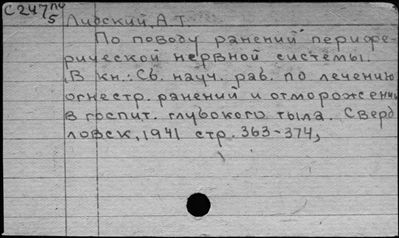 С247пу/5 Лидский, А.Т.
По поводу ранений перифе-
рической нервной системы.
В кн.: Сб. науч. раб. по лечению
огнестр. ранений и отморожений
в госпит. глубокого тыла. Сверд
ловск, 1941 стр. 363-374,